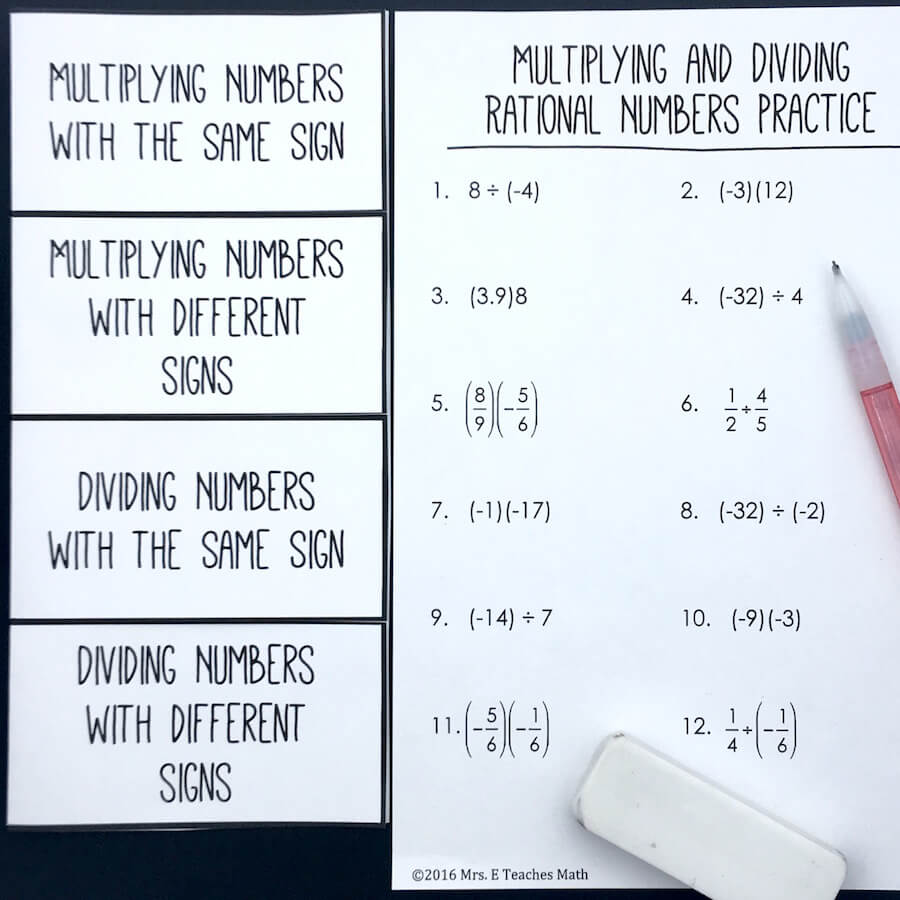 MULTIPLYING NUMBERS
WITH THE SAME SIGN
MULTIPLYING NUMBERS
WITH DIFFERENT
SIGNS
DIVIDING NUMBERS
WITH THE SAME SIGN
DIVIDING NUMBERS
WITH DIFFERENT
SIGNS
MULTIPLYING AND DIVIDING
RATIONAL NUMBERS PRACTICE
1. 8 ÷ (-4)
2. (-3)(12)
3. (3.9)8
4. (-32) ÷ 4
5. (8/9)(-5/6)
6. 1/2 ÷ 4/5
7. (-1)(-17)
8. (-32) ÷ (-2)
9. (-14) ÷ 7
10. (-9)(-3)
11. (-5/6)(-1/6)
12. 1/4 ÷ (-1/6)
©2016 Mrs. E Teaches Math